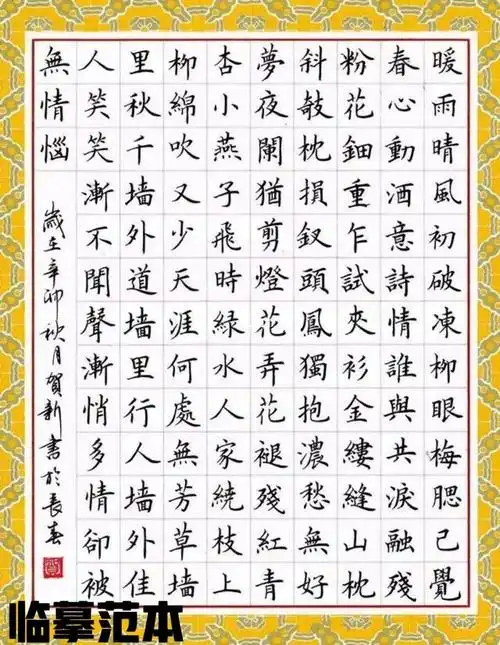 暖雨晴風初破凍柳眼梅腮已覺
春心動酒意詩情誰與共淚融殘
粉花鈿重乍試夾衫金縷縫山枕
斜敧枕損釵頭鳳獨抱濃愁無好
夢夜闌猶剪燈花弄花褪殘紅青
杏小燕子飛時綠水人家繞枝上
柳綿吹又少天涯何處無芳草墙
里秋千墙外道墙里行人墙外佳
人笑笑漸不聞聲漸悄多情卻被
無情惱
歲在辛卯秋月賀新書於長春
临摹范本